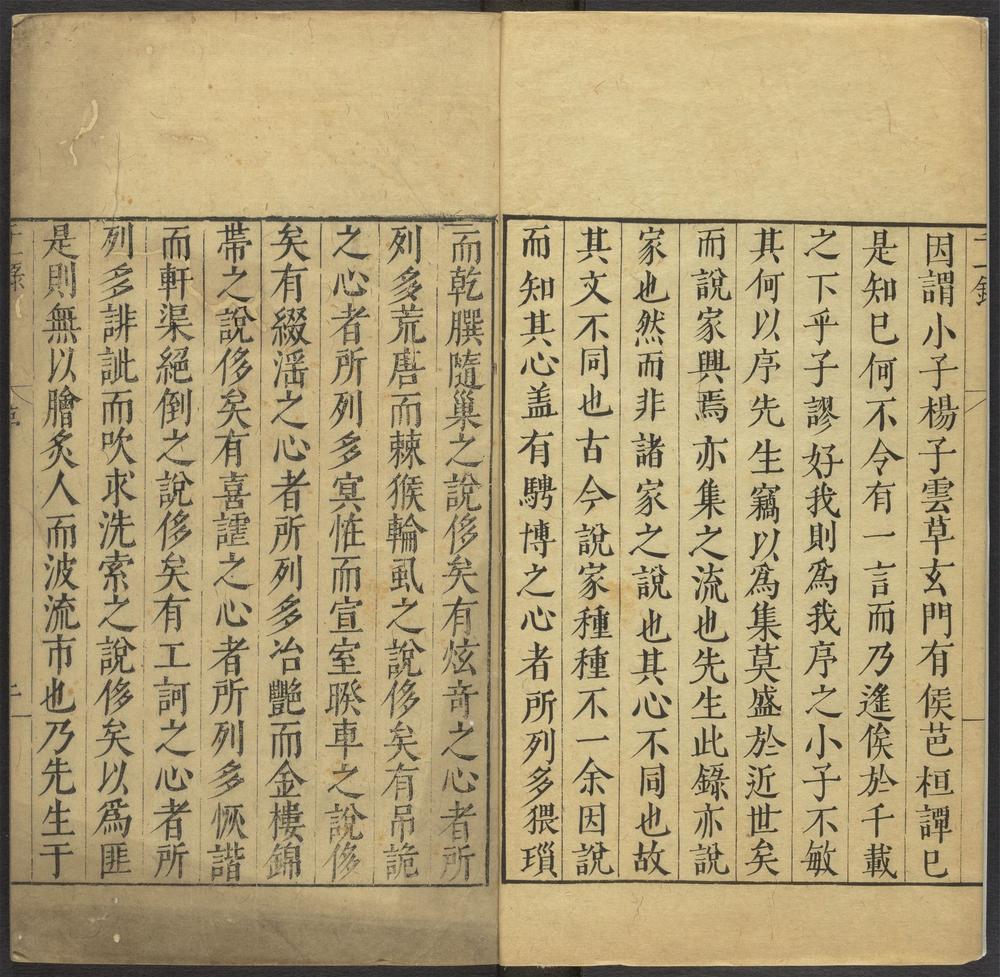 因謂小子楊子雲草玄門有侯芭桓譚已
是知已何不令有一言而乃遙俟於千載
之下乎子謬好我則爲我序之小子不敏
其何以序先生竊以爲集莫盛於近世矣
而說家興焉亦集之流也先生此錄亦說
家也然而非諸家之說也其心不同也故
其文不同也古今說家種種不一余因說
而知其心盖有騁博之心者所列多猥瑣
而乾腰隨巢之說侈矣有炫奇之心者所
列多荒唐而棘猴輪虱之說侈矣有吊詭
之心者所列多寘恠而宣室睽車之說侈
矣有綴滛之心者所列多冶艷而金樓錦
帶之說侈矣有喜謔之心者所列多恢諧
而軒渠絕倒之說侈矣有工訶之心者所
列多誹訿而吹求洗索之說侈矣以爲匪
是則無以膾炙人而波流市也乃先生于